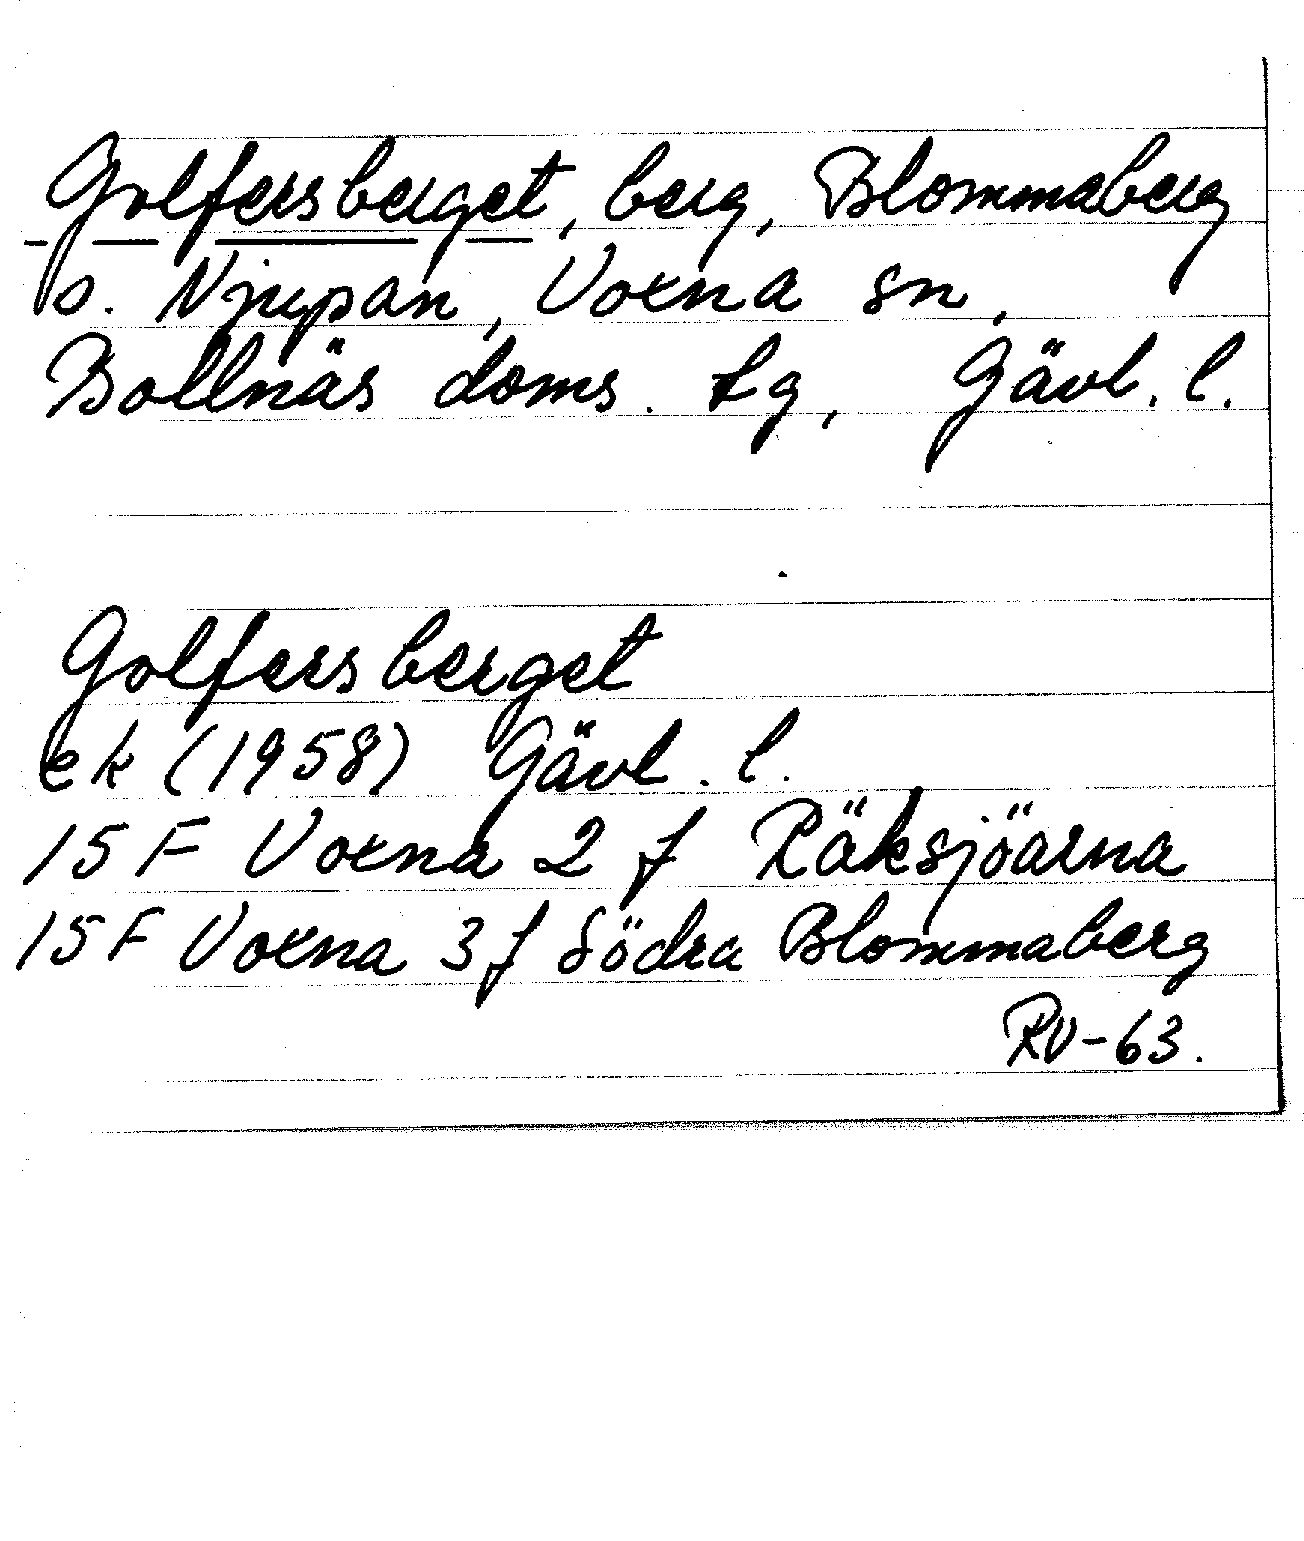 Golfersberget, berg, Blommaberg
o. Njupan, Voxna sn,
Bollnäs doms. tg, Gävl. l.
Golfersberget
ek (1958) Gävl. l.
15 F Voxna 2 f Räksjöarna
15 F Voxna 3 f Södra Blommaberg
RV-63.